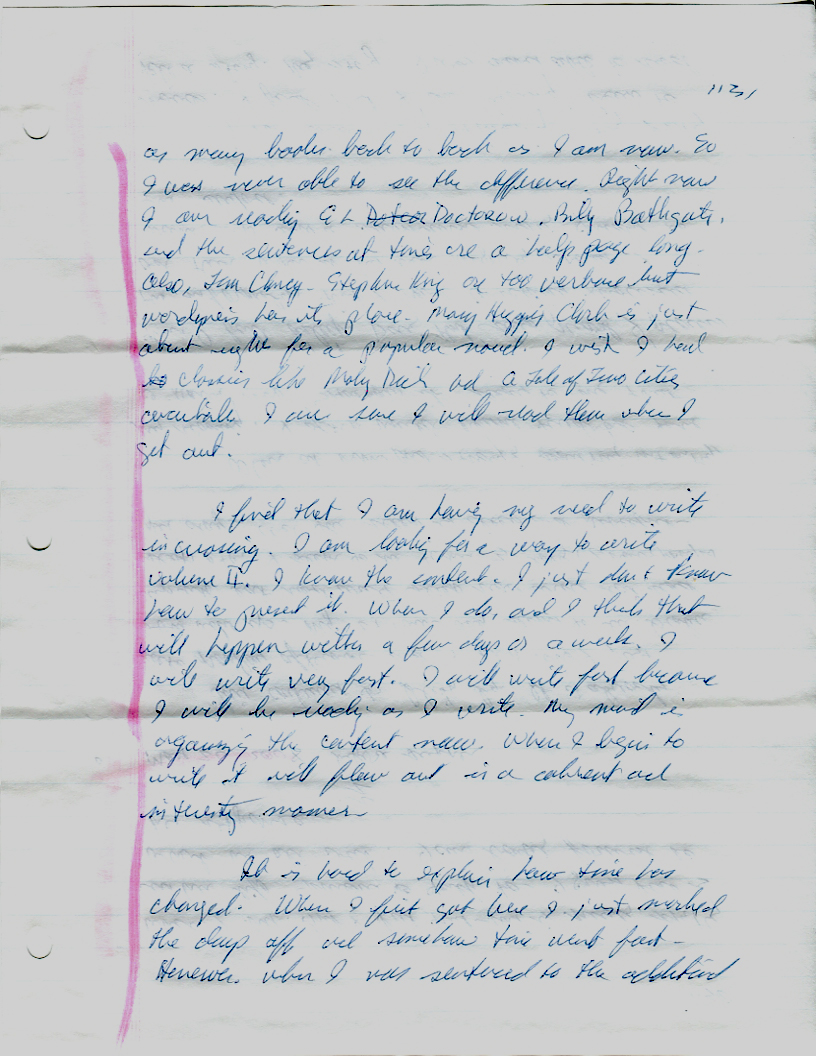 as many books back to back as I am now. So
I was never able to see the difference. Right now
I am reading E L Doctorow, Billy Bathgate,
and the sentences at times are a half page long.
Also, Tom Clancy - Stephen King are too verbose but
wordiness has its place. Mary Higgins Clark is just
about right for a popular novel. I wish I had
classics like Moby Dick and A Tale of Two Cities
available. I am sure I will read them when I
get out.
I find that I am having my need to write
increasing. I am looking for a way to write
volume II. I know the content. I just don't know
how to present it. When I do, and I think that
will happen within a few days or a week. I
will write very fast. I will write fast because
I will be ready as I write. My mind is
organizing the content now. When I begin to
write it will flow out in a coherent and
interesting manner
It is hard to explain how time has
changed. When I first got here I just marked
the days off and somehow time went fast -
However, when I was sentenced to the additional